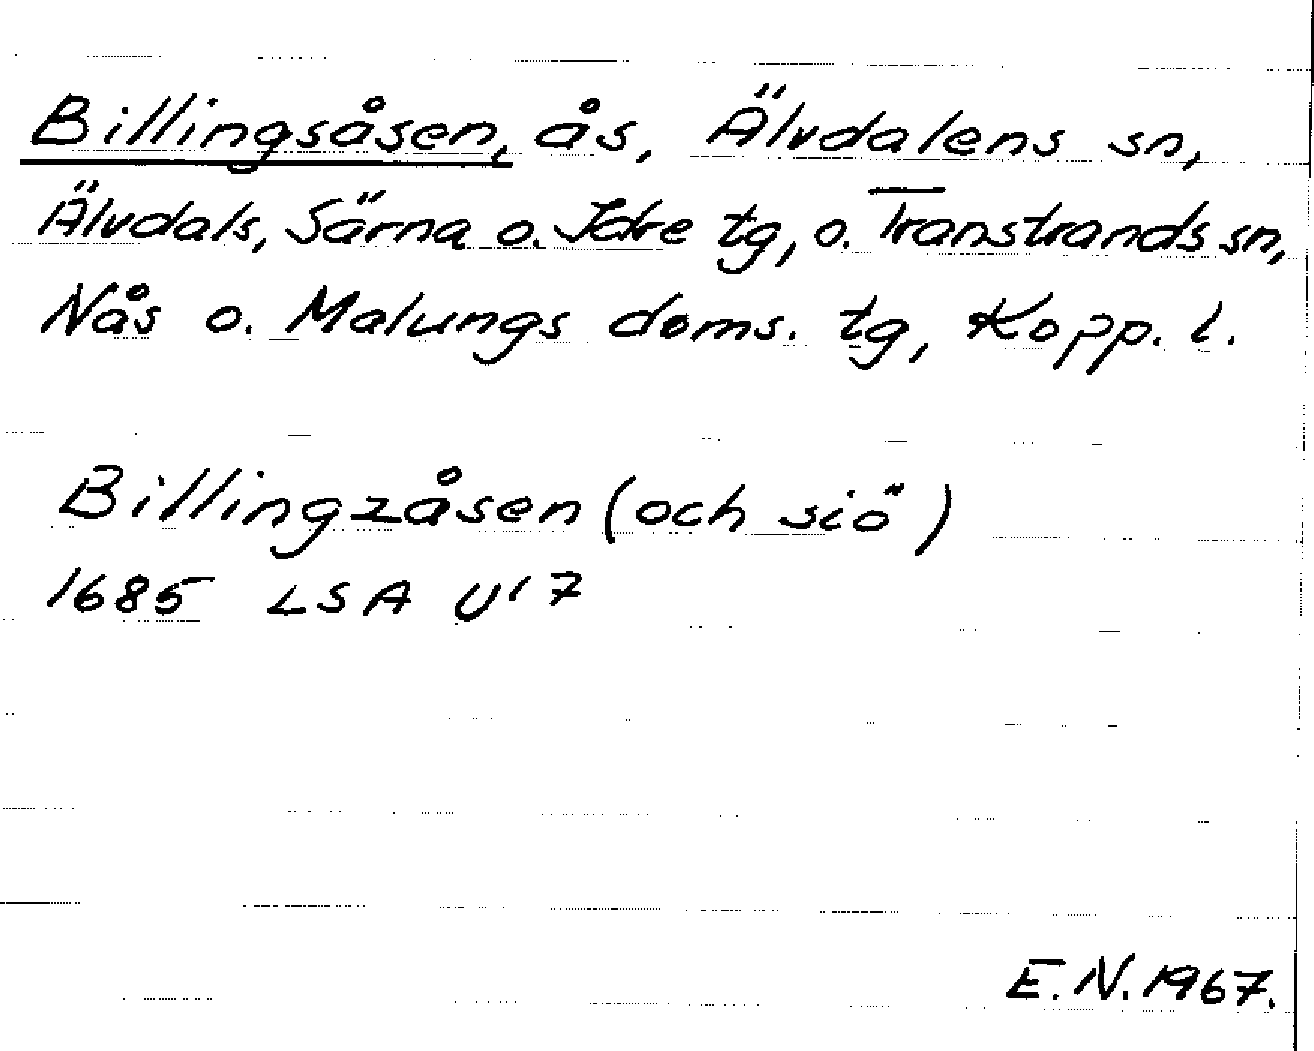 Billingsåsen, ås, Älvdalens sn,
Älvdals, Särna o. Idre tg, o. Transtrands sn,
Nås o. Malungs doms. tg, Kopp. l.
Billingzåsen (och siö)
1685 LSA U'7
E.N. 1967.